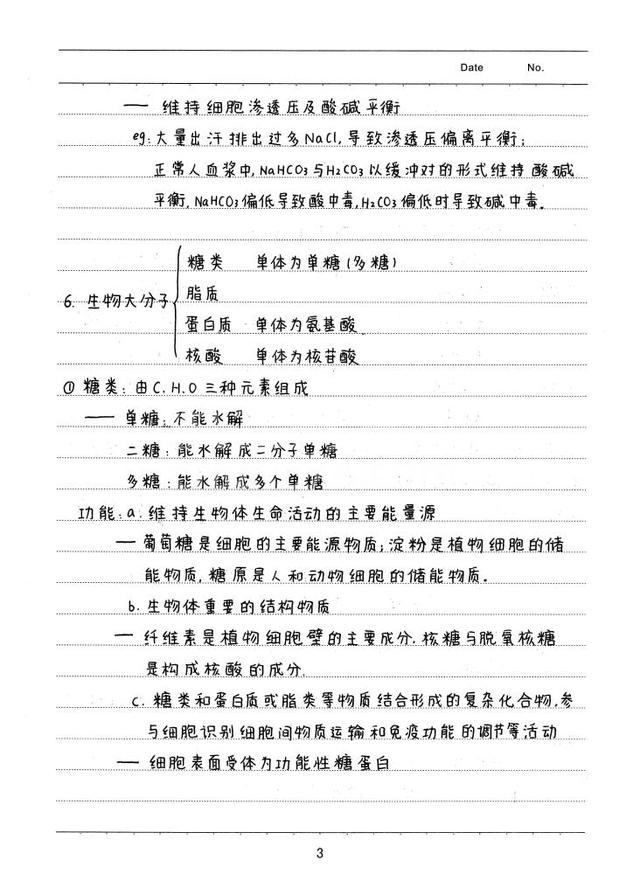 Date No.
— 维持细胞渗透压及酸碱平衡
eg:大量出汗排出过多NaCl,导致渗透压偏离平衡;
正常人血浆中,NaHCO3与H2CO3以缓冲对的形式维持酸碱
平衡,NaHCO3偏低导致酸中毒,H2CO3偏低时导致碱中毒.
糖类 单体为单糖(多糖)
6. 生物大分子 脂质
蛋白质 单体为氨基酸
核酸 单体为核苷酸
① 糖类:由C.H.O三种元素组成
— 单糖:不能水解
二糖:能水解成二分子单糖
多糖:能水解成多个单糖
功能:a.维持生物体生命活动的主要能量源
— 葡萄糖是细胞的主要能源物质;淀粉是植物细胞的储
能物质,糖原是人和动物细胞的储能物质.
b.生物体重要的结构物质
— 纤维素是植物细胞壁的主要成分.核糖与脱氧核糖
是构成核酸的成分.
c.糖类和蛋白质或脂类等物质结合形成的复杂化合物,参
与细胞识别细胞间物质运输和免疫功能的调节等活动
— 细胞表面受体为功能性糖蛋白
3